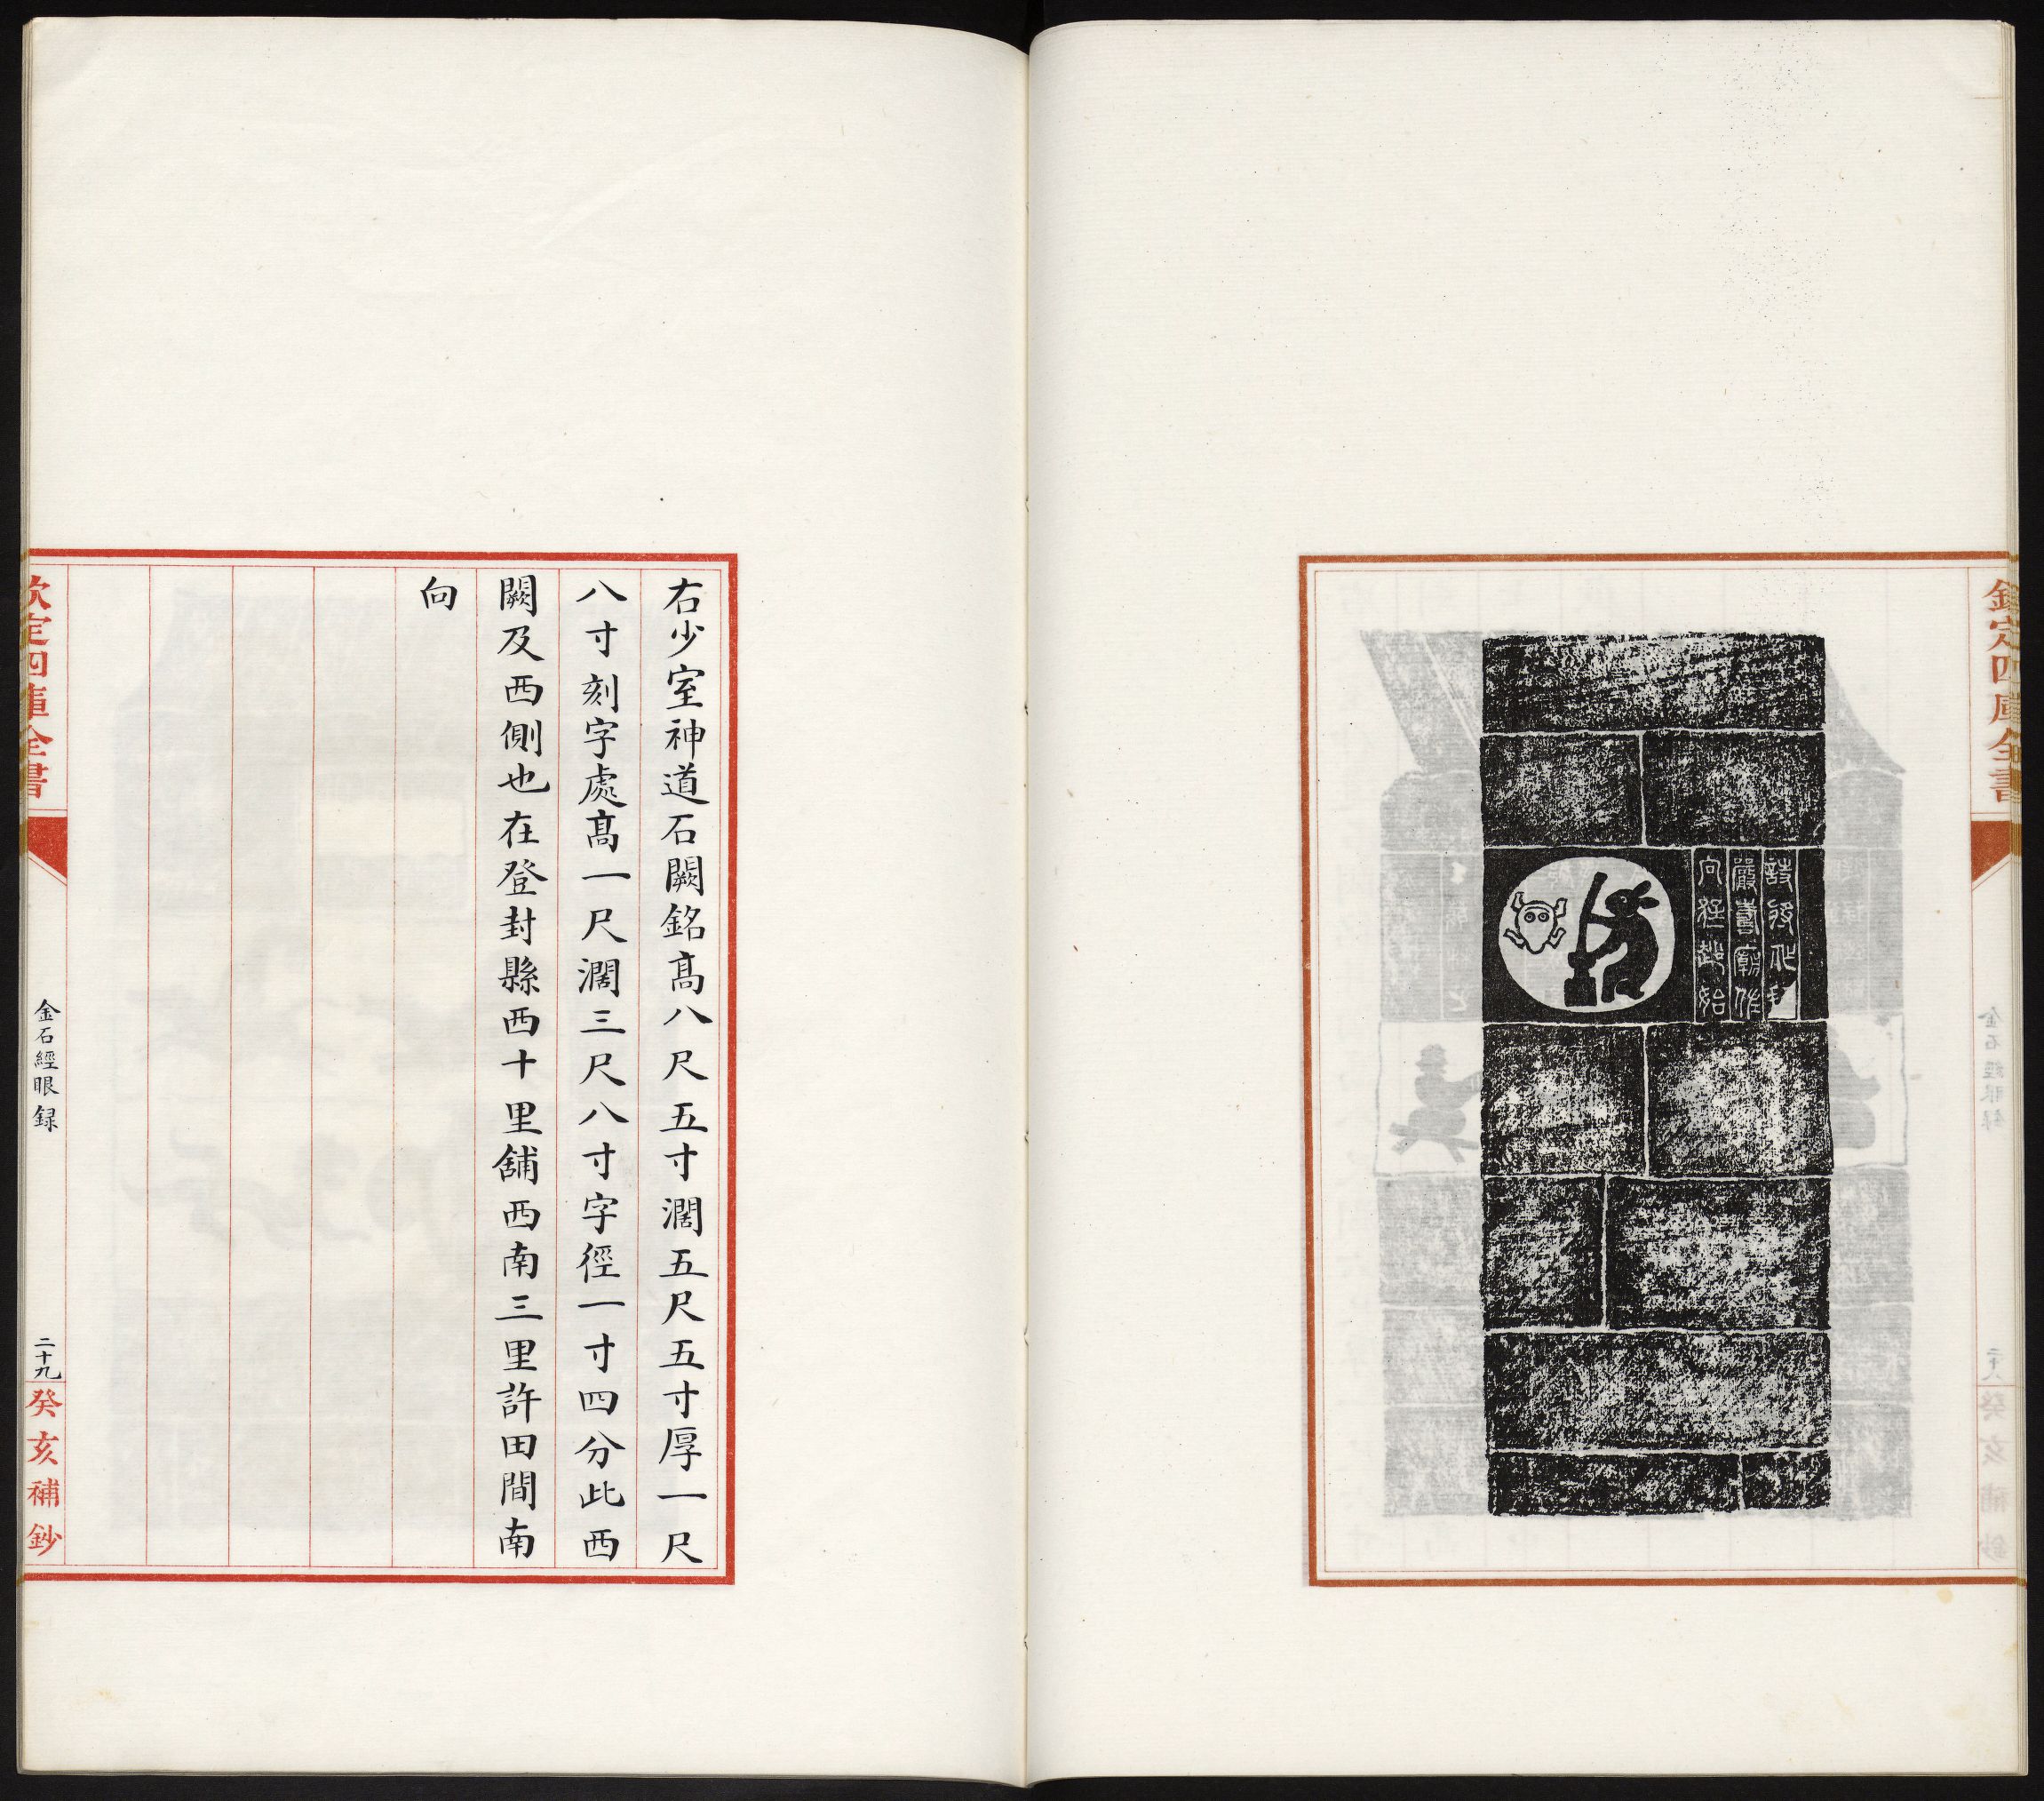 欽定四庫全書
右少室神道石闕銘髙八尺五寸濶五尺五寸厚一尺
八寸刻字處髙一尺濶三尺八寸字徑一寸四分此西
闕及西側也在登封縣西十里舖西南三里許田間南
向
欽定四庫全書
金石經眼録
二十九
癸亥補鈔